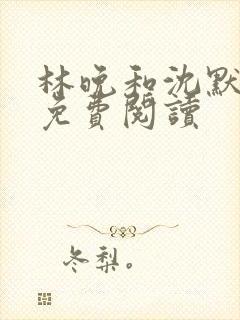 林晚和沈默
免費閱讀
冬梨。